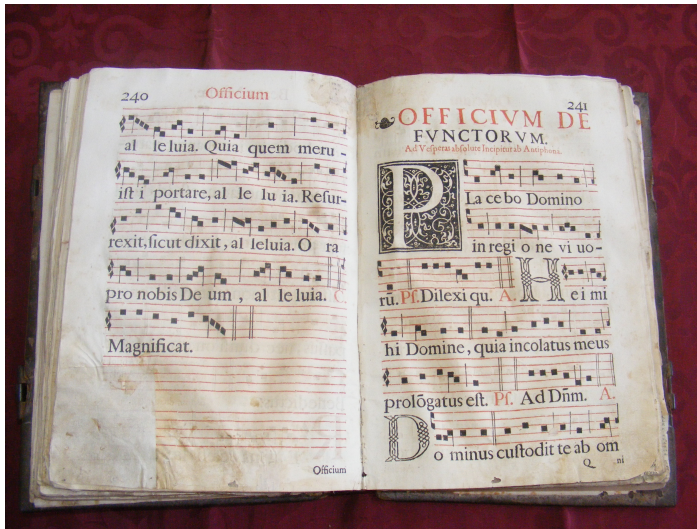 240 Officium
al le luia. Quia quem meru -
ist i portare, al le lu ia. Resur-
rexit, sicut dixit, al leluia. O ra
pro nobis De um, al le luia. C
Magnificat.
Officium
241
OFFICIVM DE
FVNCTORVM.
Ad Vesperas absolute Incipitur ab Antiphona.
PLa ce bo Domino
in regi o ne vi uo-
rũ. Ps. Dilexi qu. A. H e i mi
hi Domine, quia incolatus meus
prolõgatus est. Ps. Ad Dñm. A.
Do minus custodit te ab om
Q ni